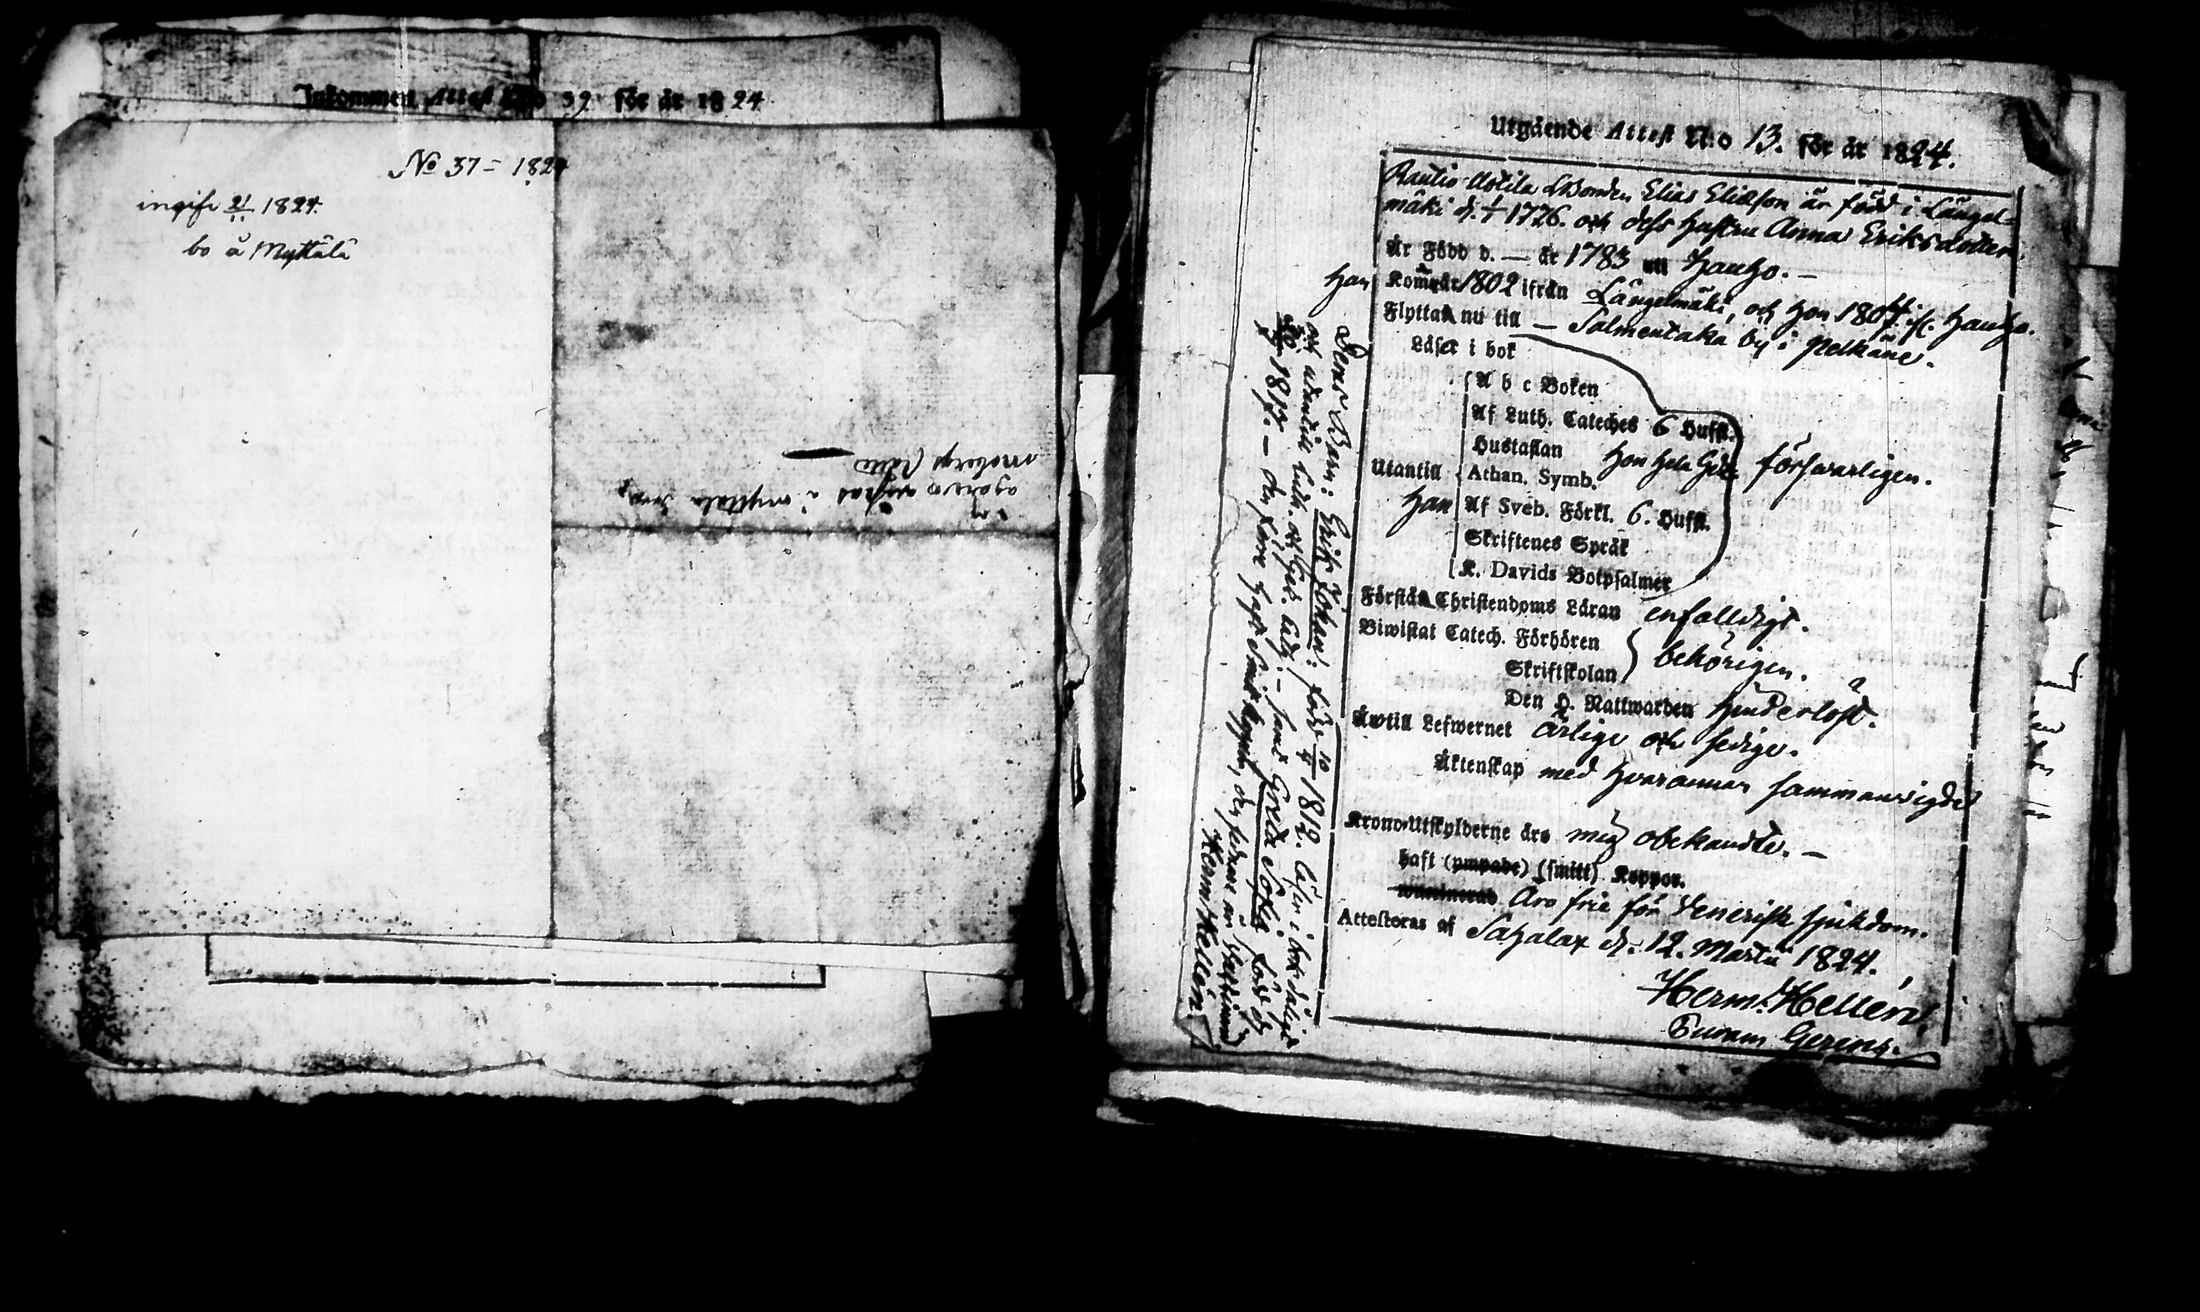 Inkommen Attest N:o 39 för år 1824
No 37 = 1824
ingift 21/11 1824.
bo å Myttälä
Utgående Attest N:o 13. för år 1824.
Rautio Uotila Bonden Elias Eliæson är född i Längel=
mäki d. 1/1 1776. och dess hustru Anna Eriksdotter.
Är Född d. — år 1783 uti Hauho. —
han Kom år 1802 ifrån Längelmäki, och hon 1804 fr. Hauho.
Flytta nu till — Salmentaka by i Pelkäne.
Läser i bok
A b c Boken
Af Luth. Cateches 6 Hufst.
Hustaflan hon hela
Utantill Athan. Symb. försvarligen.
han Af Sveb. Förkl. 6. Hufst.
Skriftenes Språk
K. Davids Botpsalmer
Förstå Christendoms Läran enfalldigt.
Biwistat Catech. Förhören
Skriftskolan } behörigen.
Den H. Nattwarden hinderlöst.
Härtill Lefwernet ärlige och sedige.
Äktenskap med hvarannan sammanvigde
Krono-Utskylderne äro mig obekandte. —
haft (ympade) (smitt) Koppor.
Äro frie för Venerisk sjukdom.
Attesteras af Sahalax d. 12. Martii 1824.
Herm. Hellén.
Curam Gerens.
Deras Barn: Erik Johan: född 10/4 1812. läser i bok dålig
och utantill Luth. - samt Greta Sofia född d.
1817. - den förre haft smittkoppor, den senare är Vaccinerad
Herm. Hellén.